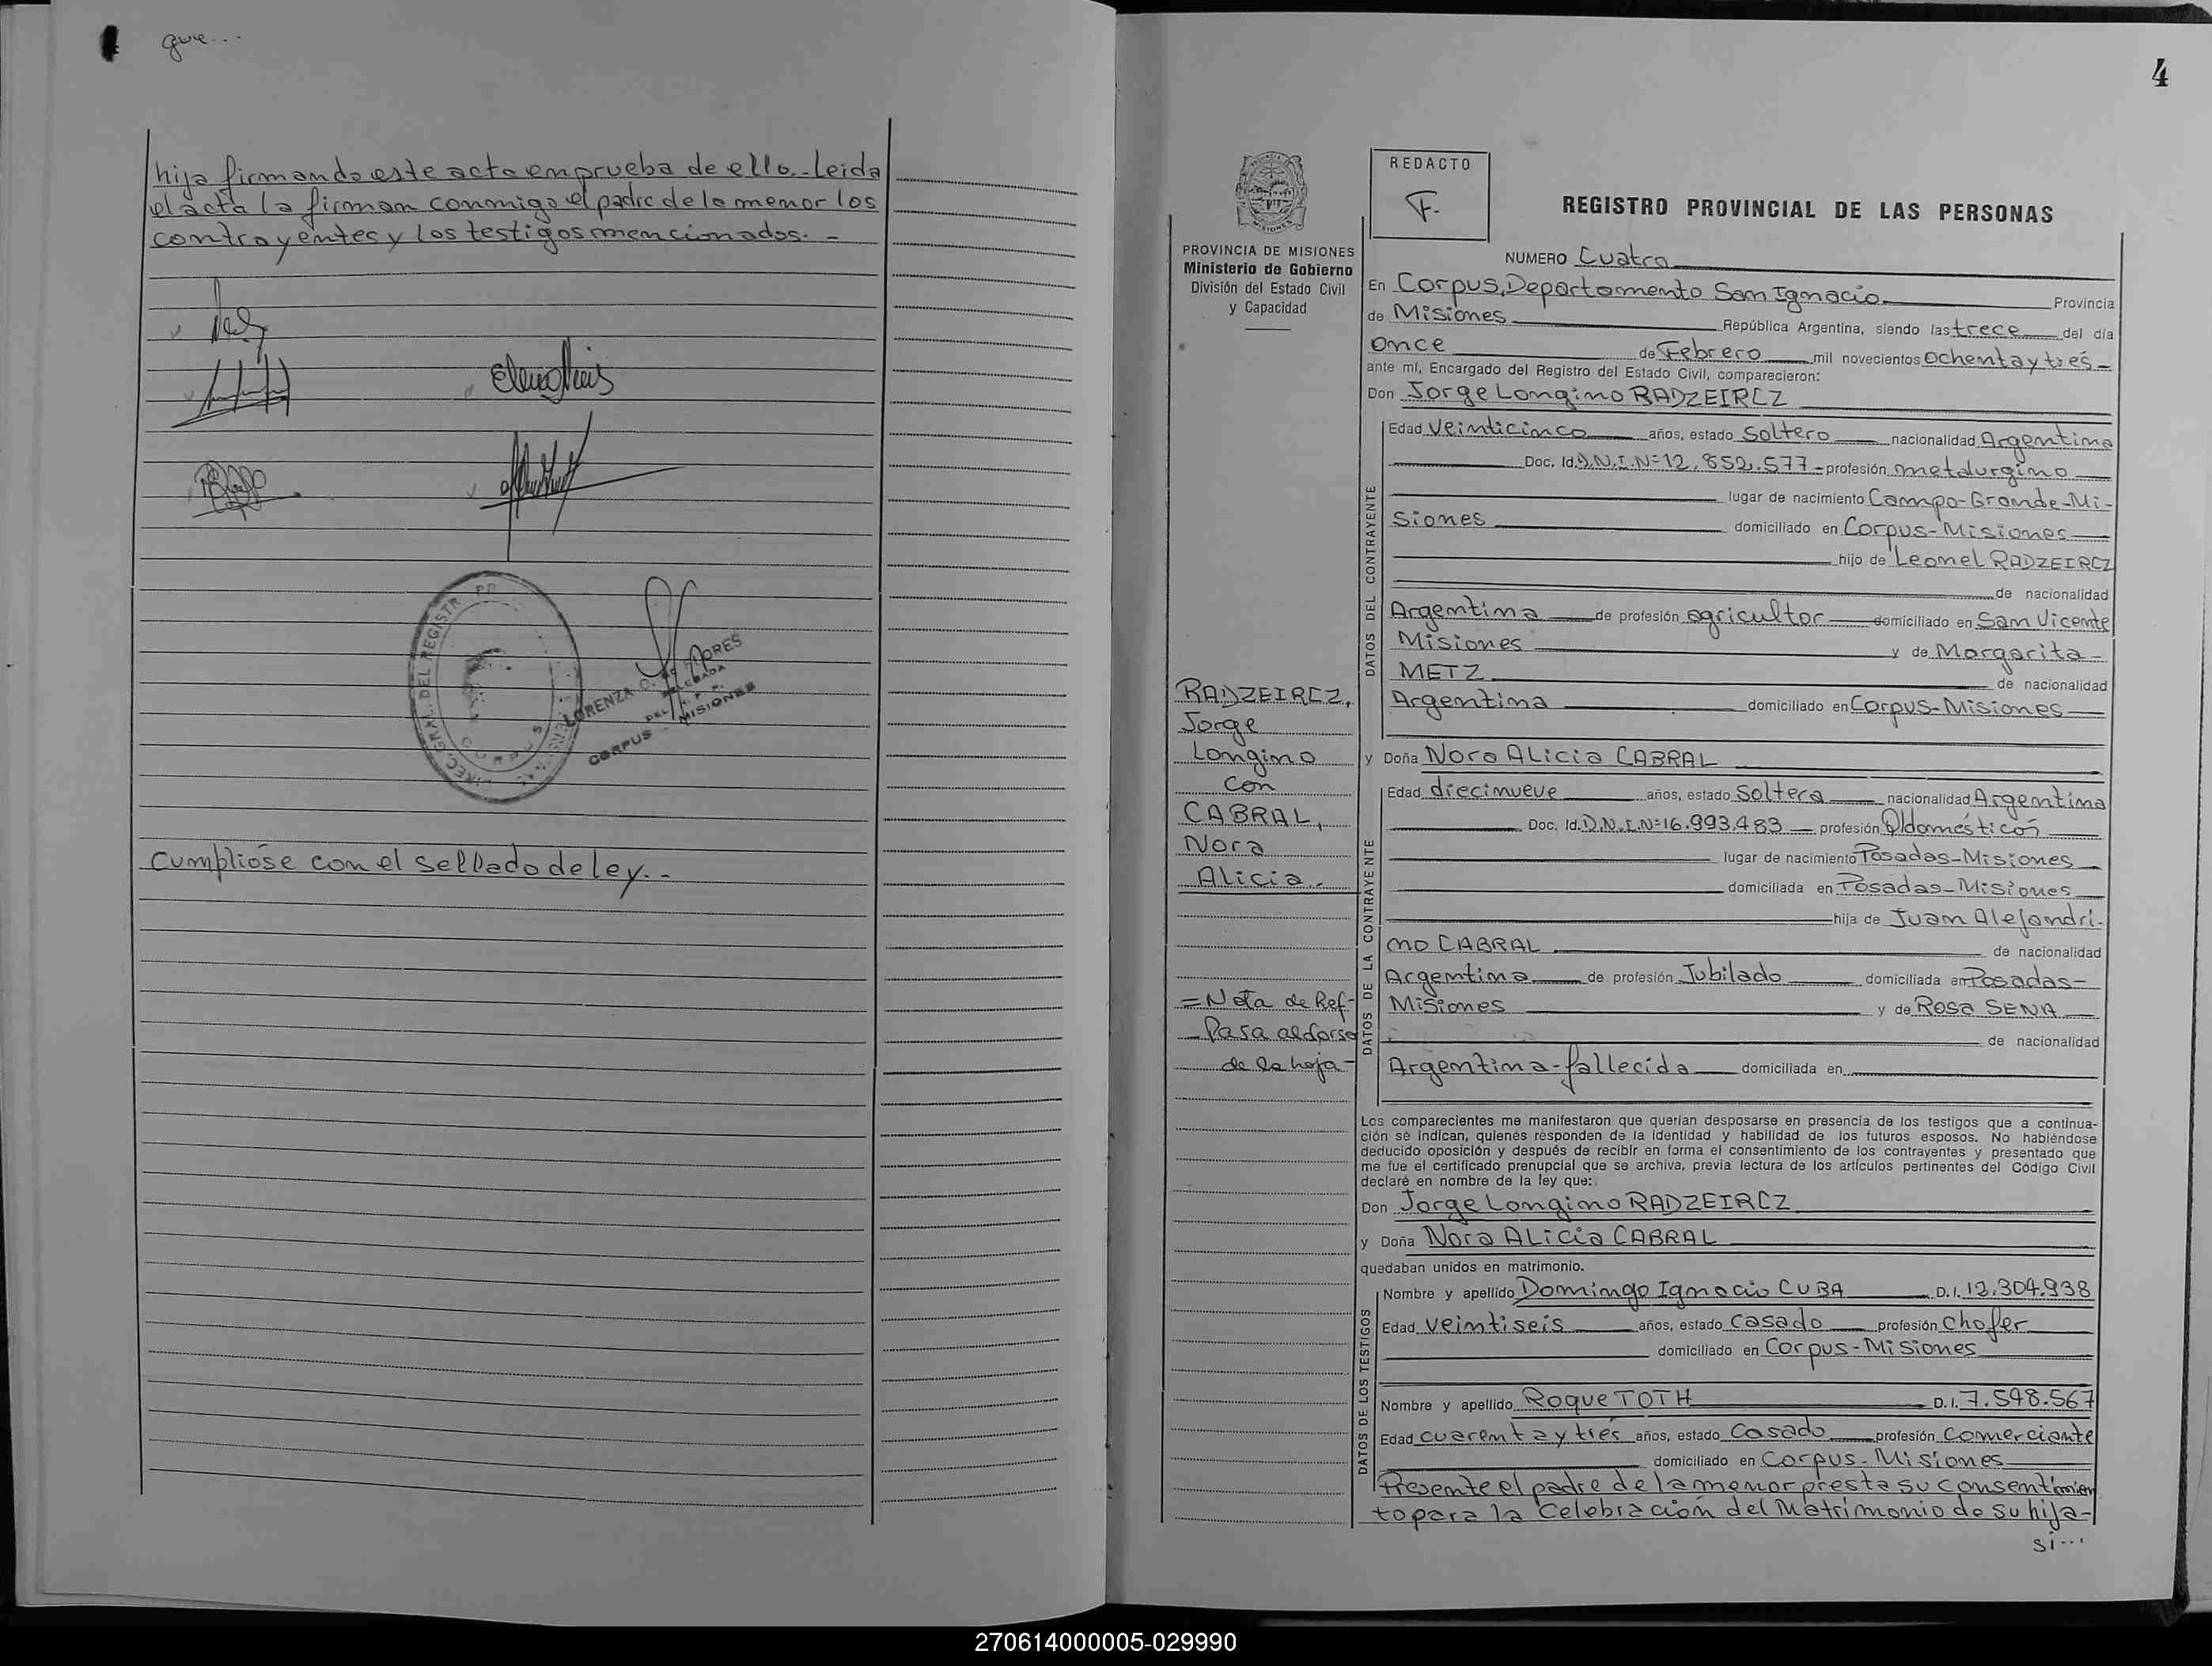 que...
hija firmando este acta en prueba de ello.- Leida
el acta la firman conmigo el padre de la menor los
contrayentes y los testigos mencionados.-
DIREC. GRAL. DEL REGISTR
CORPUS
LORENZA
FLORES
DELEGADA
CORPUS MISIONES
Cumplióse con el sellado de ley.-
4
PROVINCIA DE MISIONES
Ministerio de Gobierno
División del Estado Civil
y Capacidad
REDACTO
F.
REGISTRO PROVINCIAL DE LAS PERSONAS
NUMERO Cuatro
En Corpus, Departamento San Ignacio Provincia
de Misiones República Argentina, siendo las trece del día
once de Febrero mil novecientos Ochenta y tres-
ante mí, Encargado del Registro del Estado Civil, comparecieron:
Don Jorge Longino RADZEIRCZ
DATOS DEL CONTRAYENTE
Edad Veinticinco años, estado Soltero nacionalidad Argentina
Doc. Id. D.N.I.Nº12.852.577- profesión metalurgino
lugar de nacimiento Campo-Grande-Mi-
siones domiciliado en Corpus-Misiones
hijo de Leonel RADZEIRCZ
de nacionalidad
Argentina de profesión agricultor domiciliado en San Vicente
Misiones y de Margarita-
METZ de nacionalidad
Argentina domiciliado en Corpus-Misiones
RADZEIRCZ,
Jorge
Longino
Con
CABRAL,
Nora
Alicia.-
=Nota de Ref-
Pasa al dorso
de la hoja-
y Doña Nora Alicia CABRAL
DATOS DE LA CONTRAYENTE
Edad diecinueve años, estado Soltera nacionalidad Argentina
Doc. Id. D.N.I.Nº16.993.483 profesión Q/domésticos
lugar de nacimiento Posadas-Misiones
domiciliada en Posadas-Misiones
hija de Juan Alejandri-
no CABRAL de nacionalidad
Argentina de profesión Jubilado domiciliada en Posadas-
Misiones y de Rosa SENA
de nacionalidad
Argentina-fallecida domiciliada en
Los comparecientes me manifestaron que querían desposarse en presencia de los testigos que a continua-
ción se indican, quienes responden de la identidad y habilidad de los futuros esposos. No habiéndose
deducido oposición y después de recibir en forma el consentimiento de los contrayentes y presentado que
me fue el certificado prenupcial que se archiva, previa lectura de los artículos pertinentes del Código Civil
declaré en nombre de la ley que:
Don Jorge Longino RADZEIRCZ
y Doña Nora Alicia CABRAL
quedaban unidos en matrimonio.
DATOS DE LOS TESTIGOS
Nombre y apellido Domingo Ignacio CUBA D.I. 12.304.938
Edad veintiseis años, estado Casado profesión chofer
domiciliado en Corpus-Misiones
Nombre y apellido Roque TOTH D.I. 7.548.567
Edad cuarenta y tres años, estado Casado profesión Comerciante
domiciliado en Corpus-Misiones
Presente el padre de la menor presta su consentimien
to para la Celebración del Matrimonio de su hija-
si...
270614000005-029990